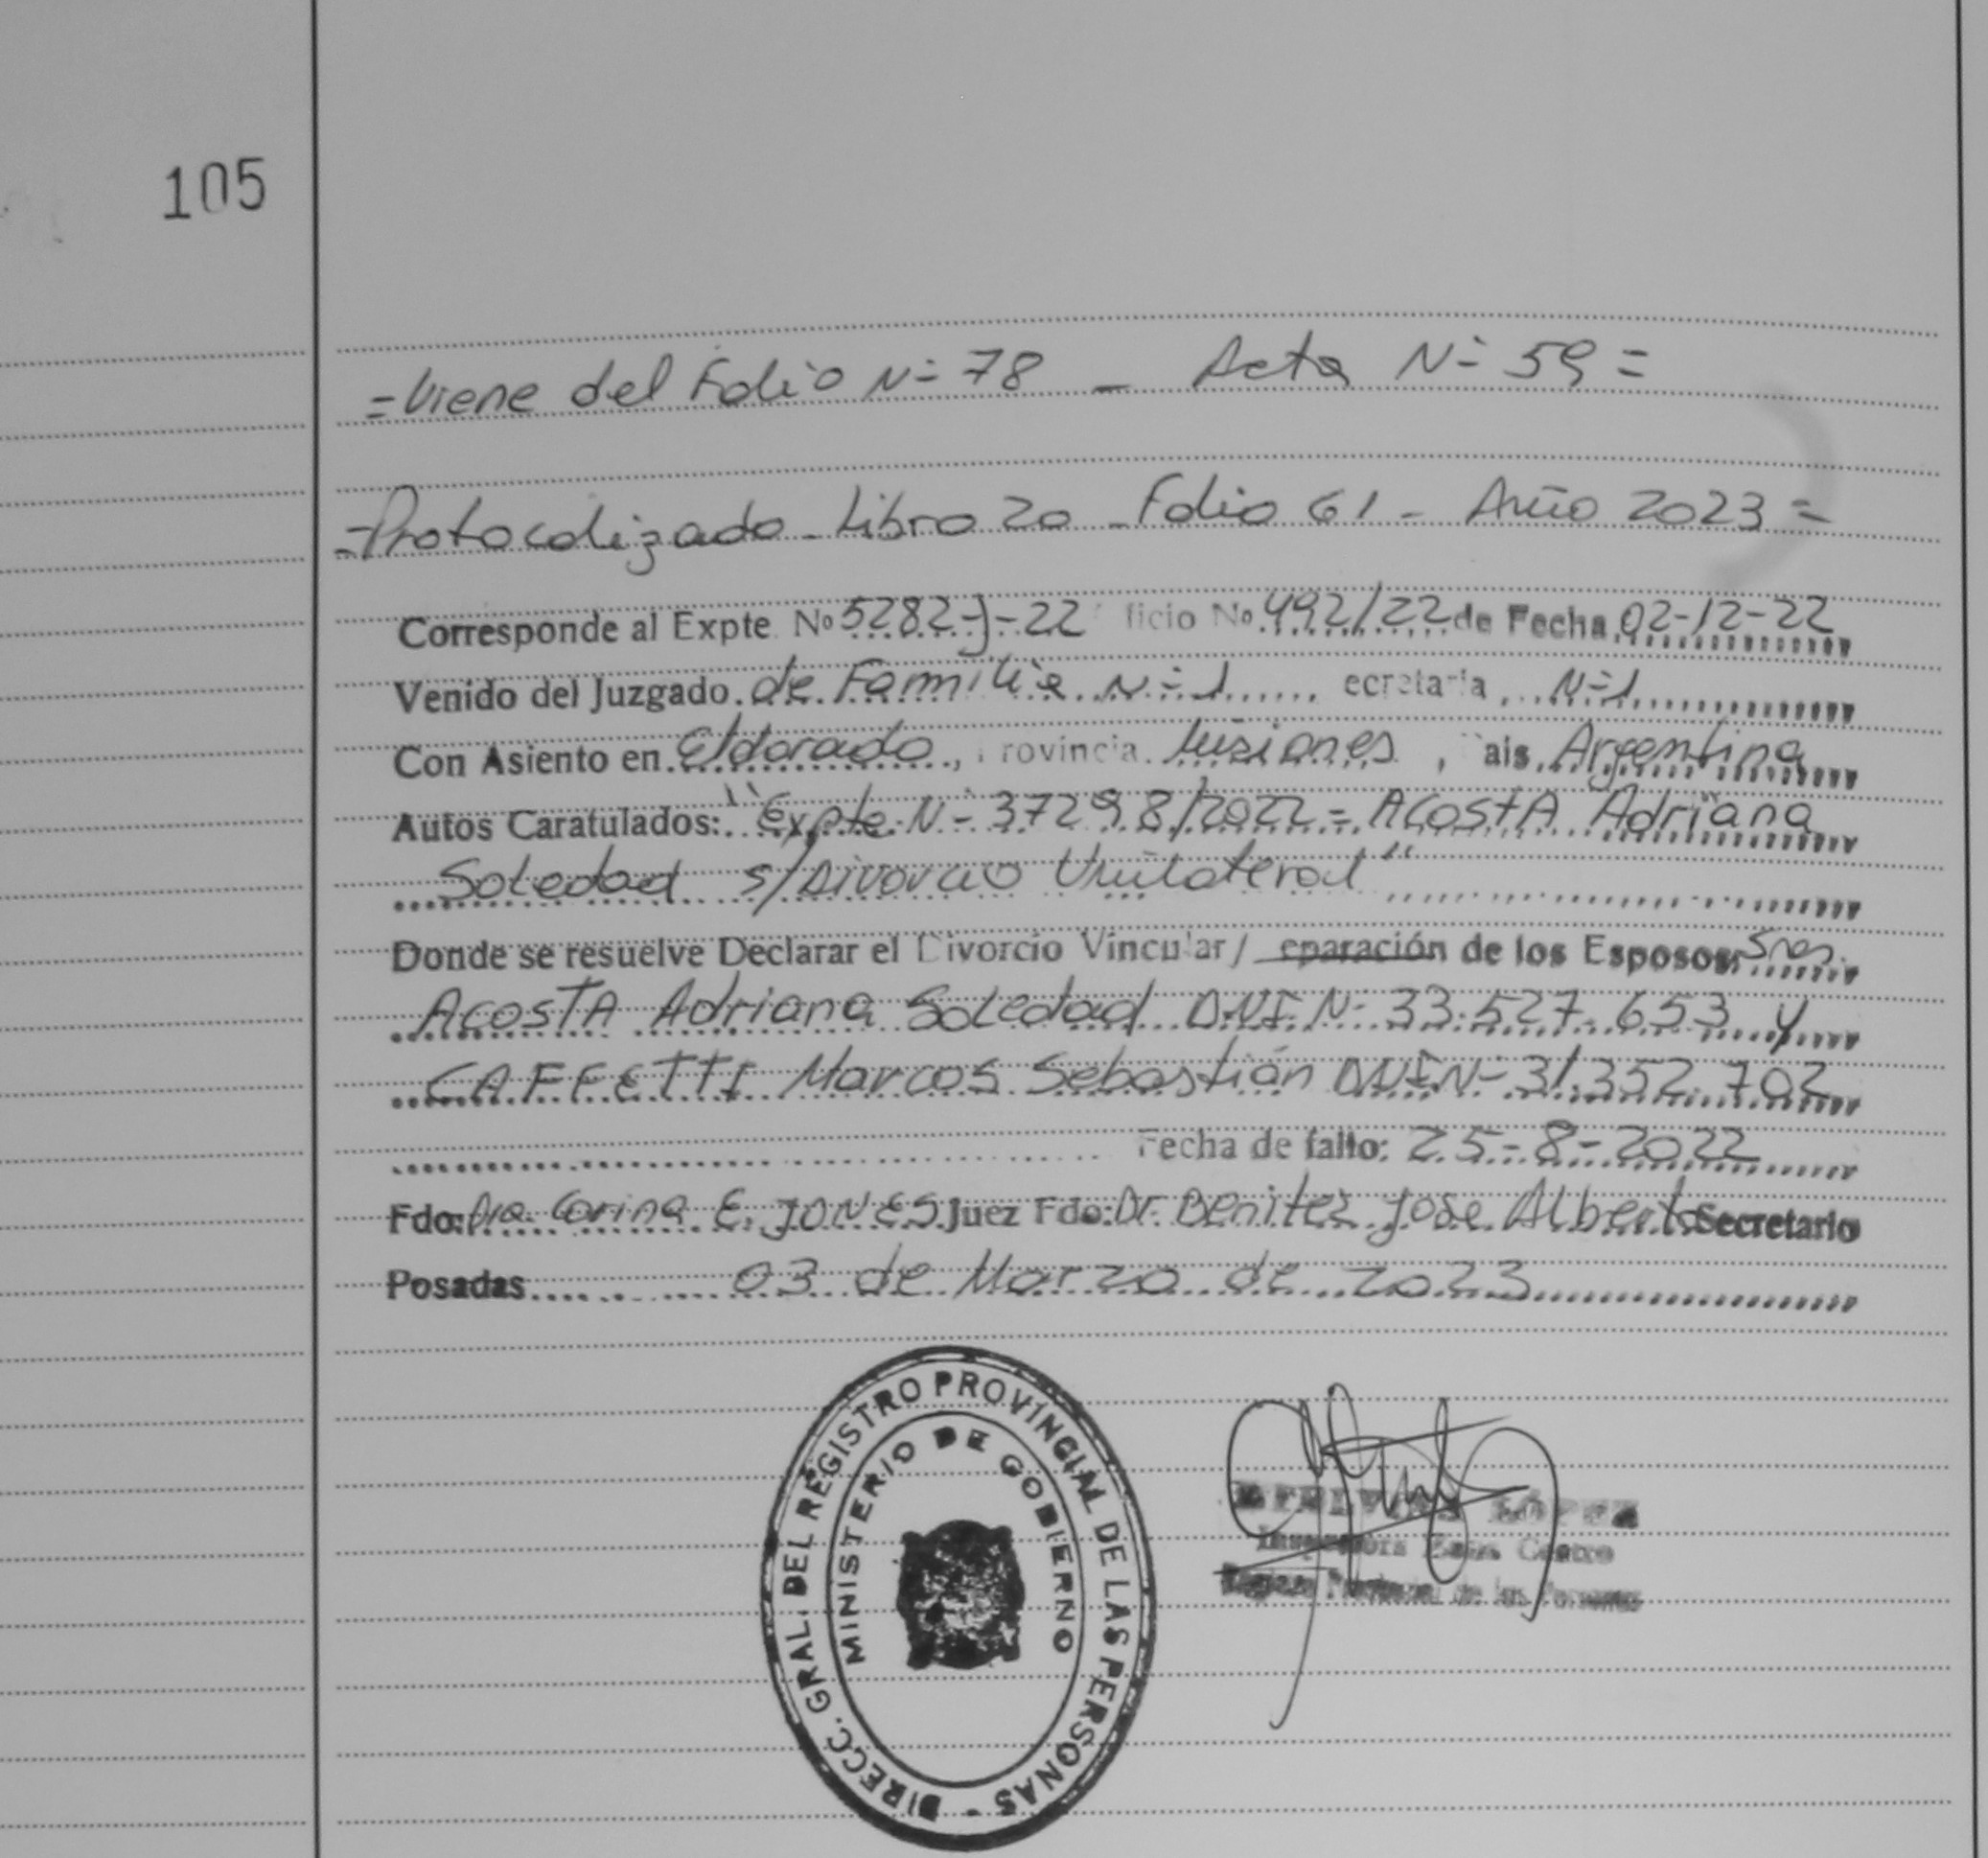 105
=Viene del Folio Nº 78 - Acta Nº 59=
=Protocolizado - Libro 20 - Folio 61 - Año 2023=
Corresponde al Expte Nº 5282-J-22 ficio Nº 492/22 de Fecha 02-12-22
Venido del Juzgado de Familia Nº 1 ecretaria, Nº 1
Con Asiento en Eldorado, rovincia Misiones, ais Argentina
Autos Caratulados: "Expte Nº 37298/2022 - ACOSTA Adriana
Soledad s/Divorcio Unilateral"
Donde se resuelve Declarar el Divorcio Vincular/ eparación de los Esposos: Sres.
ACOSTA Adriana Soledad DNI Nº 33.527.653 y
CAFFETTI Marcos Sebastián DNI Nº 31.352.702
Fecha de fallo: 25-8-2022
Fdo: Dra. Corina E. JONES Juez Fdo: Dr. Benitez Jose Alberto Secretario
Posadas 03 de Marzo de 2023
DIRECC. GRAL. DEL REGISTRO PROVINCIAL DE LAS PERSONAS -
MINISTERIO DE GOBIERNO
LÓPEZ
Inspectora Zona Centro
Registro Provincial de las Personas